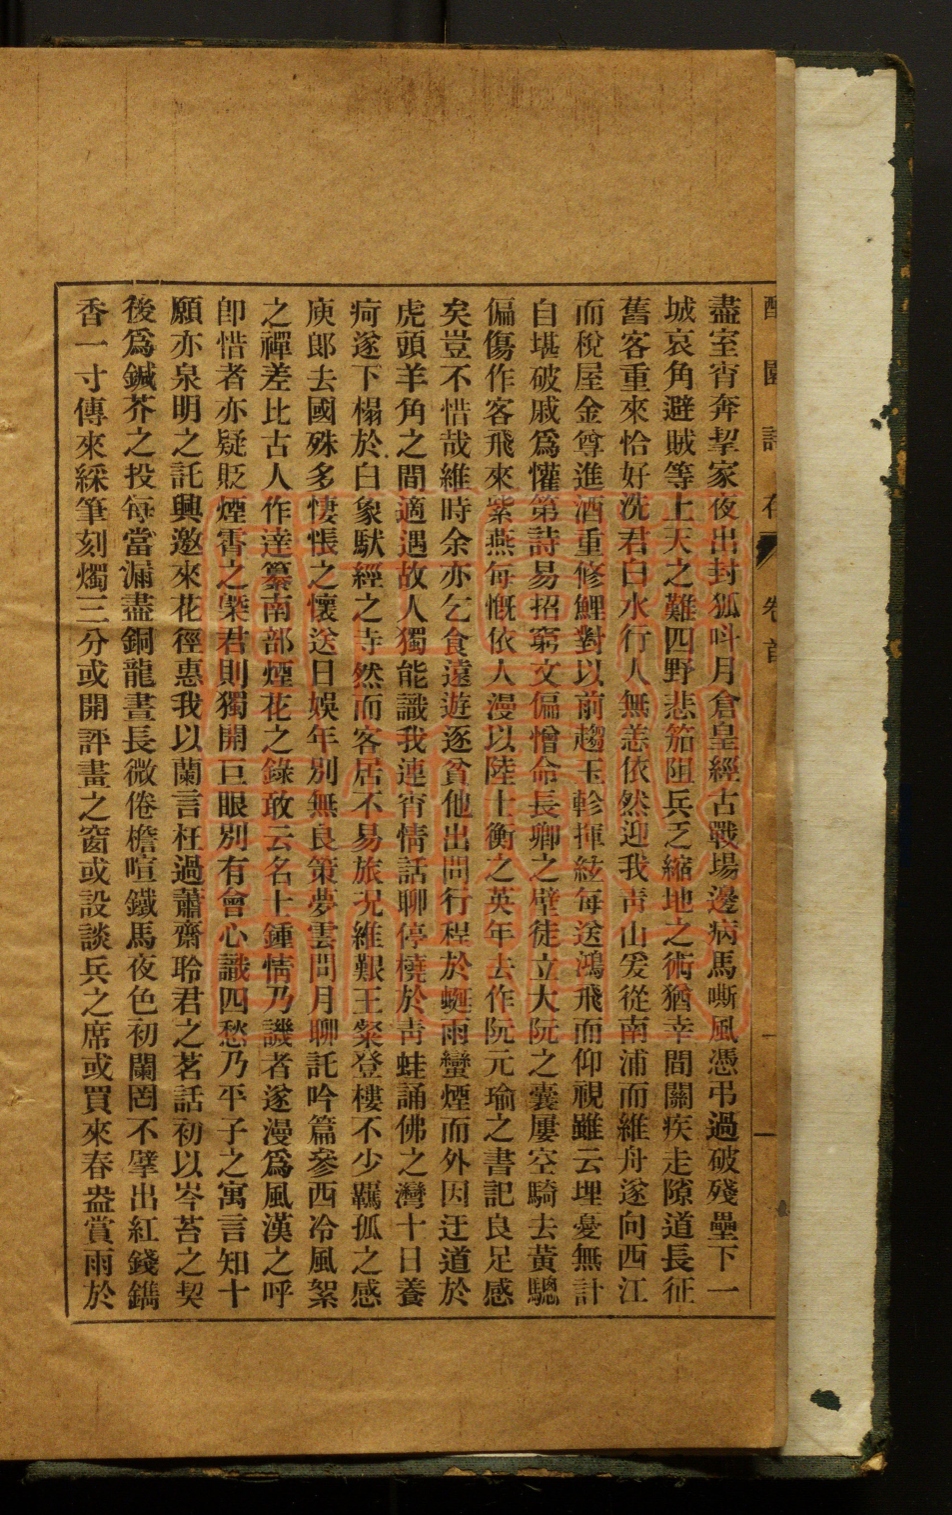 園詩存 卷首 一
盡室宵奔挈家夜出封狐呌月倉皇經古戰場邊病馬嘶風憑弔過破殘壘下一
城哀角避賊等上天之難四野悲笳阻兵乏縮地之術猶幸間關疾走隙道長征
舊客重來恰好洗君白水行人無恙依然迎我靑山爰從南浦而維舟遂向西江
而稅屋金尊進酒重修鯉對以前趨玉軫揮絃每送鴻飛而仰視雖云埋憂無計
自堪破戚爲懽第詩易招窮文偏憎命長卿之壁徒立大阮之囊屢空騎去黃驄
偏傷作客飛來紫燕每慨依人漫以陸士衡之英年去作阮元瑜之書記良足感
矣豈不惜哉維時余亦乞食遠遊逐貧他出問行程於蜒雨蠻煙而外因迂道於
虎頭羊角之間適遇故人獨能識我連宵情話聊停橈於靑蛙誦佛之灣十日養
疴遂下榻於白象馱經之寺然而客居不易旅况維艱王粲登樓不少羈孤之感
庾郞去國殊多悽悵之懷送日娛年別無良策夢雲問月聊託吟篇參西冷風絮
之禪差比古人作逹纂南部煙花之錄敢云名士鍾情乃譏者遂漫爲風漢之呼
卽惜者亦疑貶煙霄之槩君則獨開巨眼別有會心識四愁乃平子之寓言知十
願亦泉明之託興邀來花徑惠我以蘭言枉過蕭齋聆君之茗話初以岑苔之契
後爲鍼芥之投每當漏盡銅龍晝長微倦檐喧鐵馬夜色初闌罔不擘出紅錢鐫
香一寸傳來綵筆刻燭三分或開評畫之窗或設談兵之席或買來春盎賞雨於